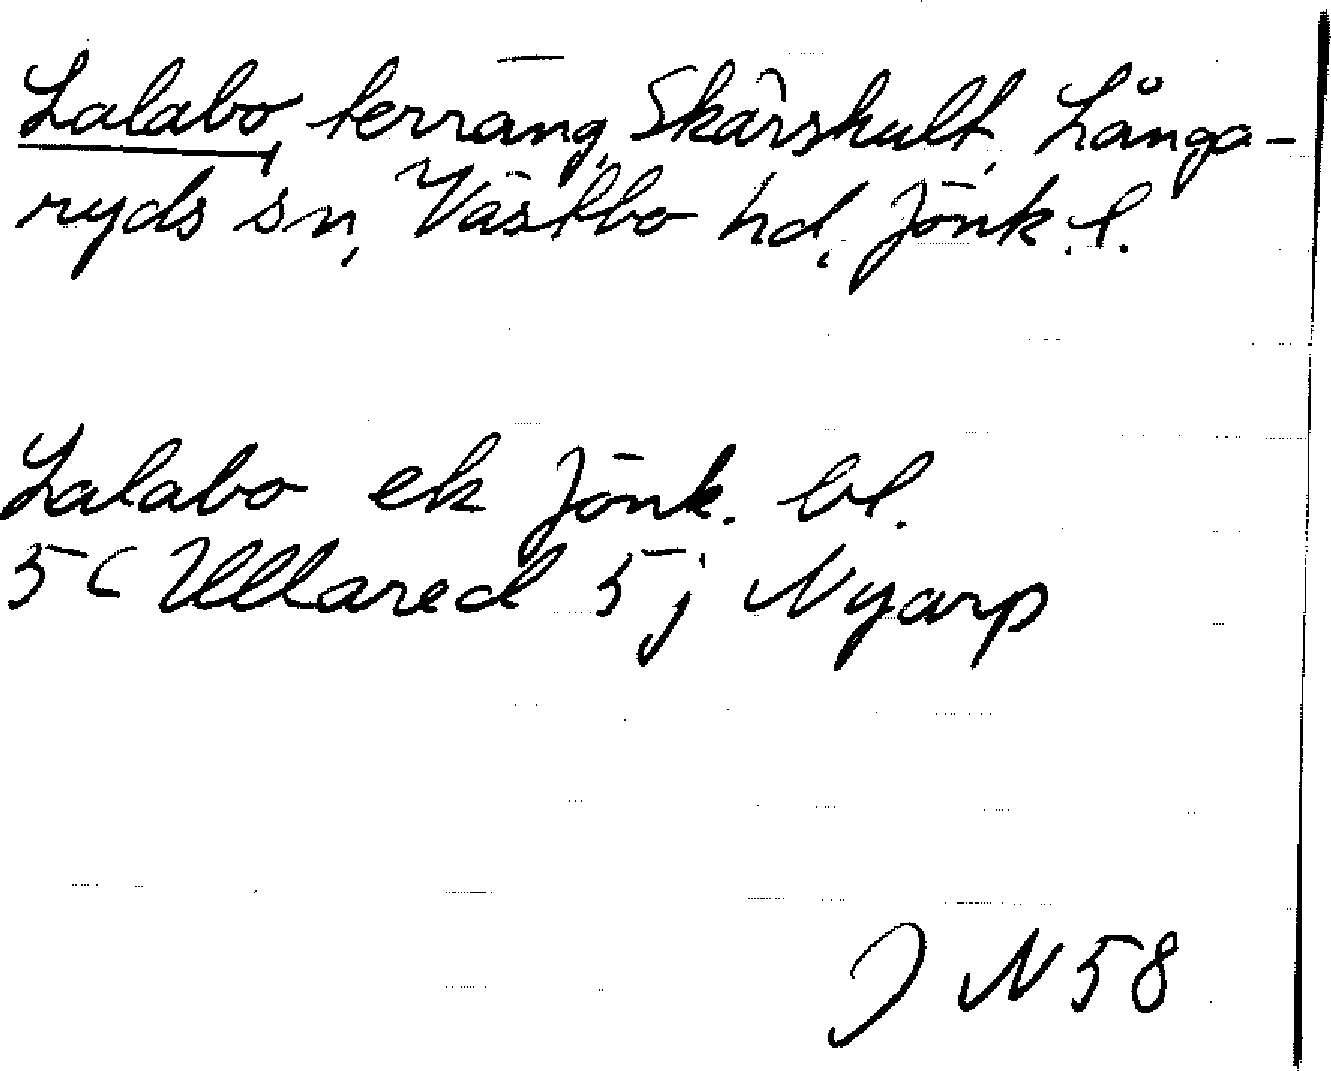 Lalabo, terräng, Skärshult, Långa-
ryds sn, Västbo hd, Jönk. l.
Lalabo ek Jönk. bl.
5C Ullared 5j Nyarp
J N 58